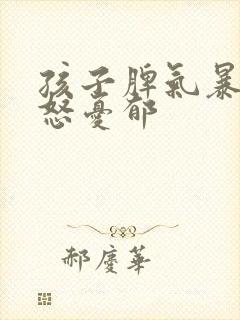 孩子脾氣暴
怒憂郁
郝慶華